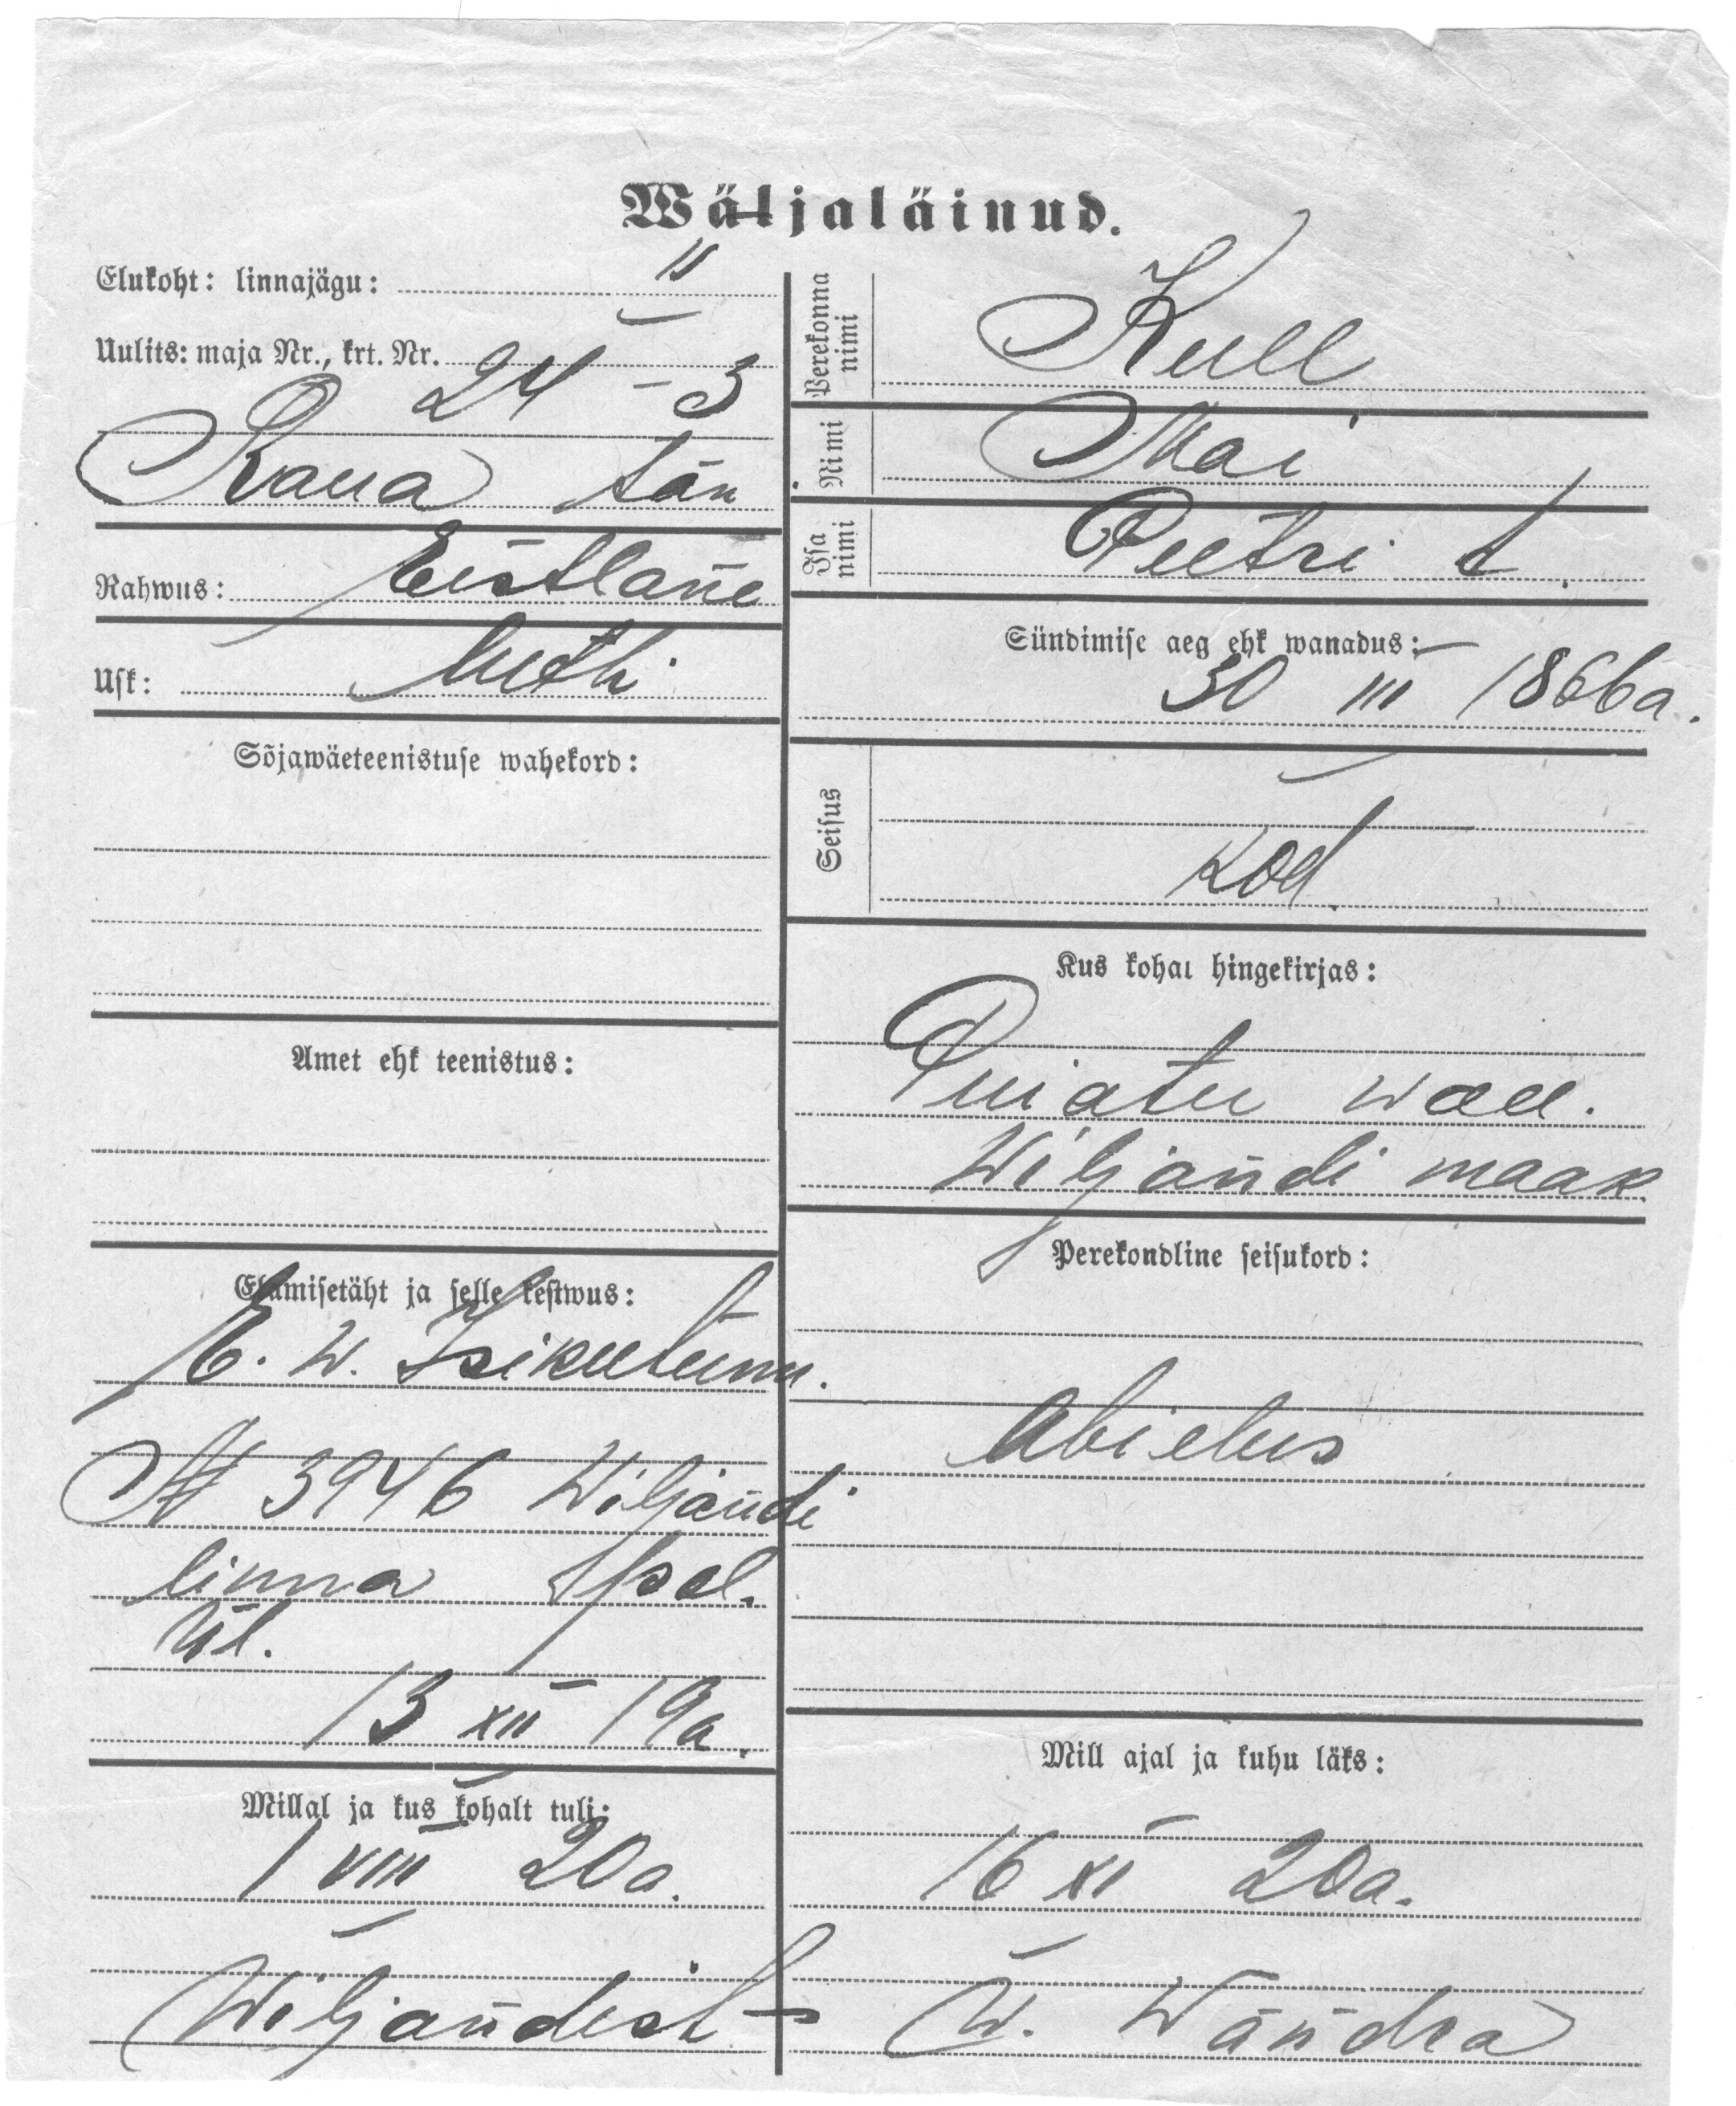 Wäljaläinud.
Elukoht: linnajägu: II
Uulits: maja Nr., krt. Nr. 24 – 3
Raua tän
Rahwus: Eestlane
Usk: luth
Sõjawäeteenistuse wahekord:
Amet ehk teenistus:
Elamisetäht ja selle kestwus:
E. W. Isikutunn.
№ 3946 Wiljandi
linna
Ül.
13 XII 19a.
Millal ja kus kohalt tuli:
1 VIII 20a.
Wiljandist
Perekonna nimi Kull
Nimi Mai
Isa nimi Peetri t.
Sündimise aeg ehk wanadus:
30 III 1866a.
Seisus
kod.
Kus kohal hingekirjas:
Puiatu wall.
Wiljandi maak
Perekondline seisukord:
Abielus
Mill ajal ja kuhu läks:
16 XI 20a.
W. Wändra